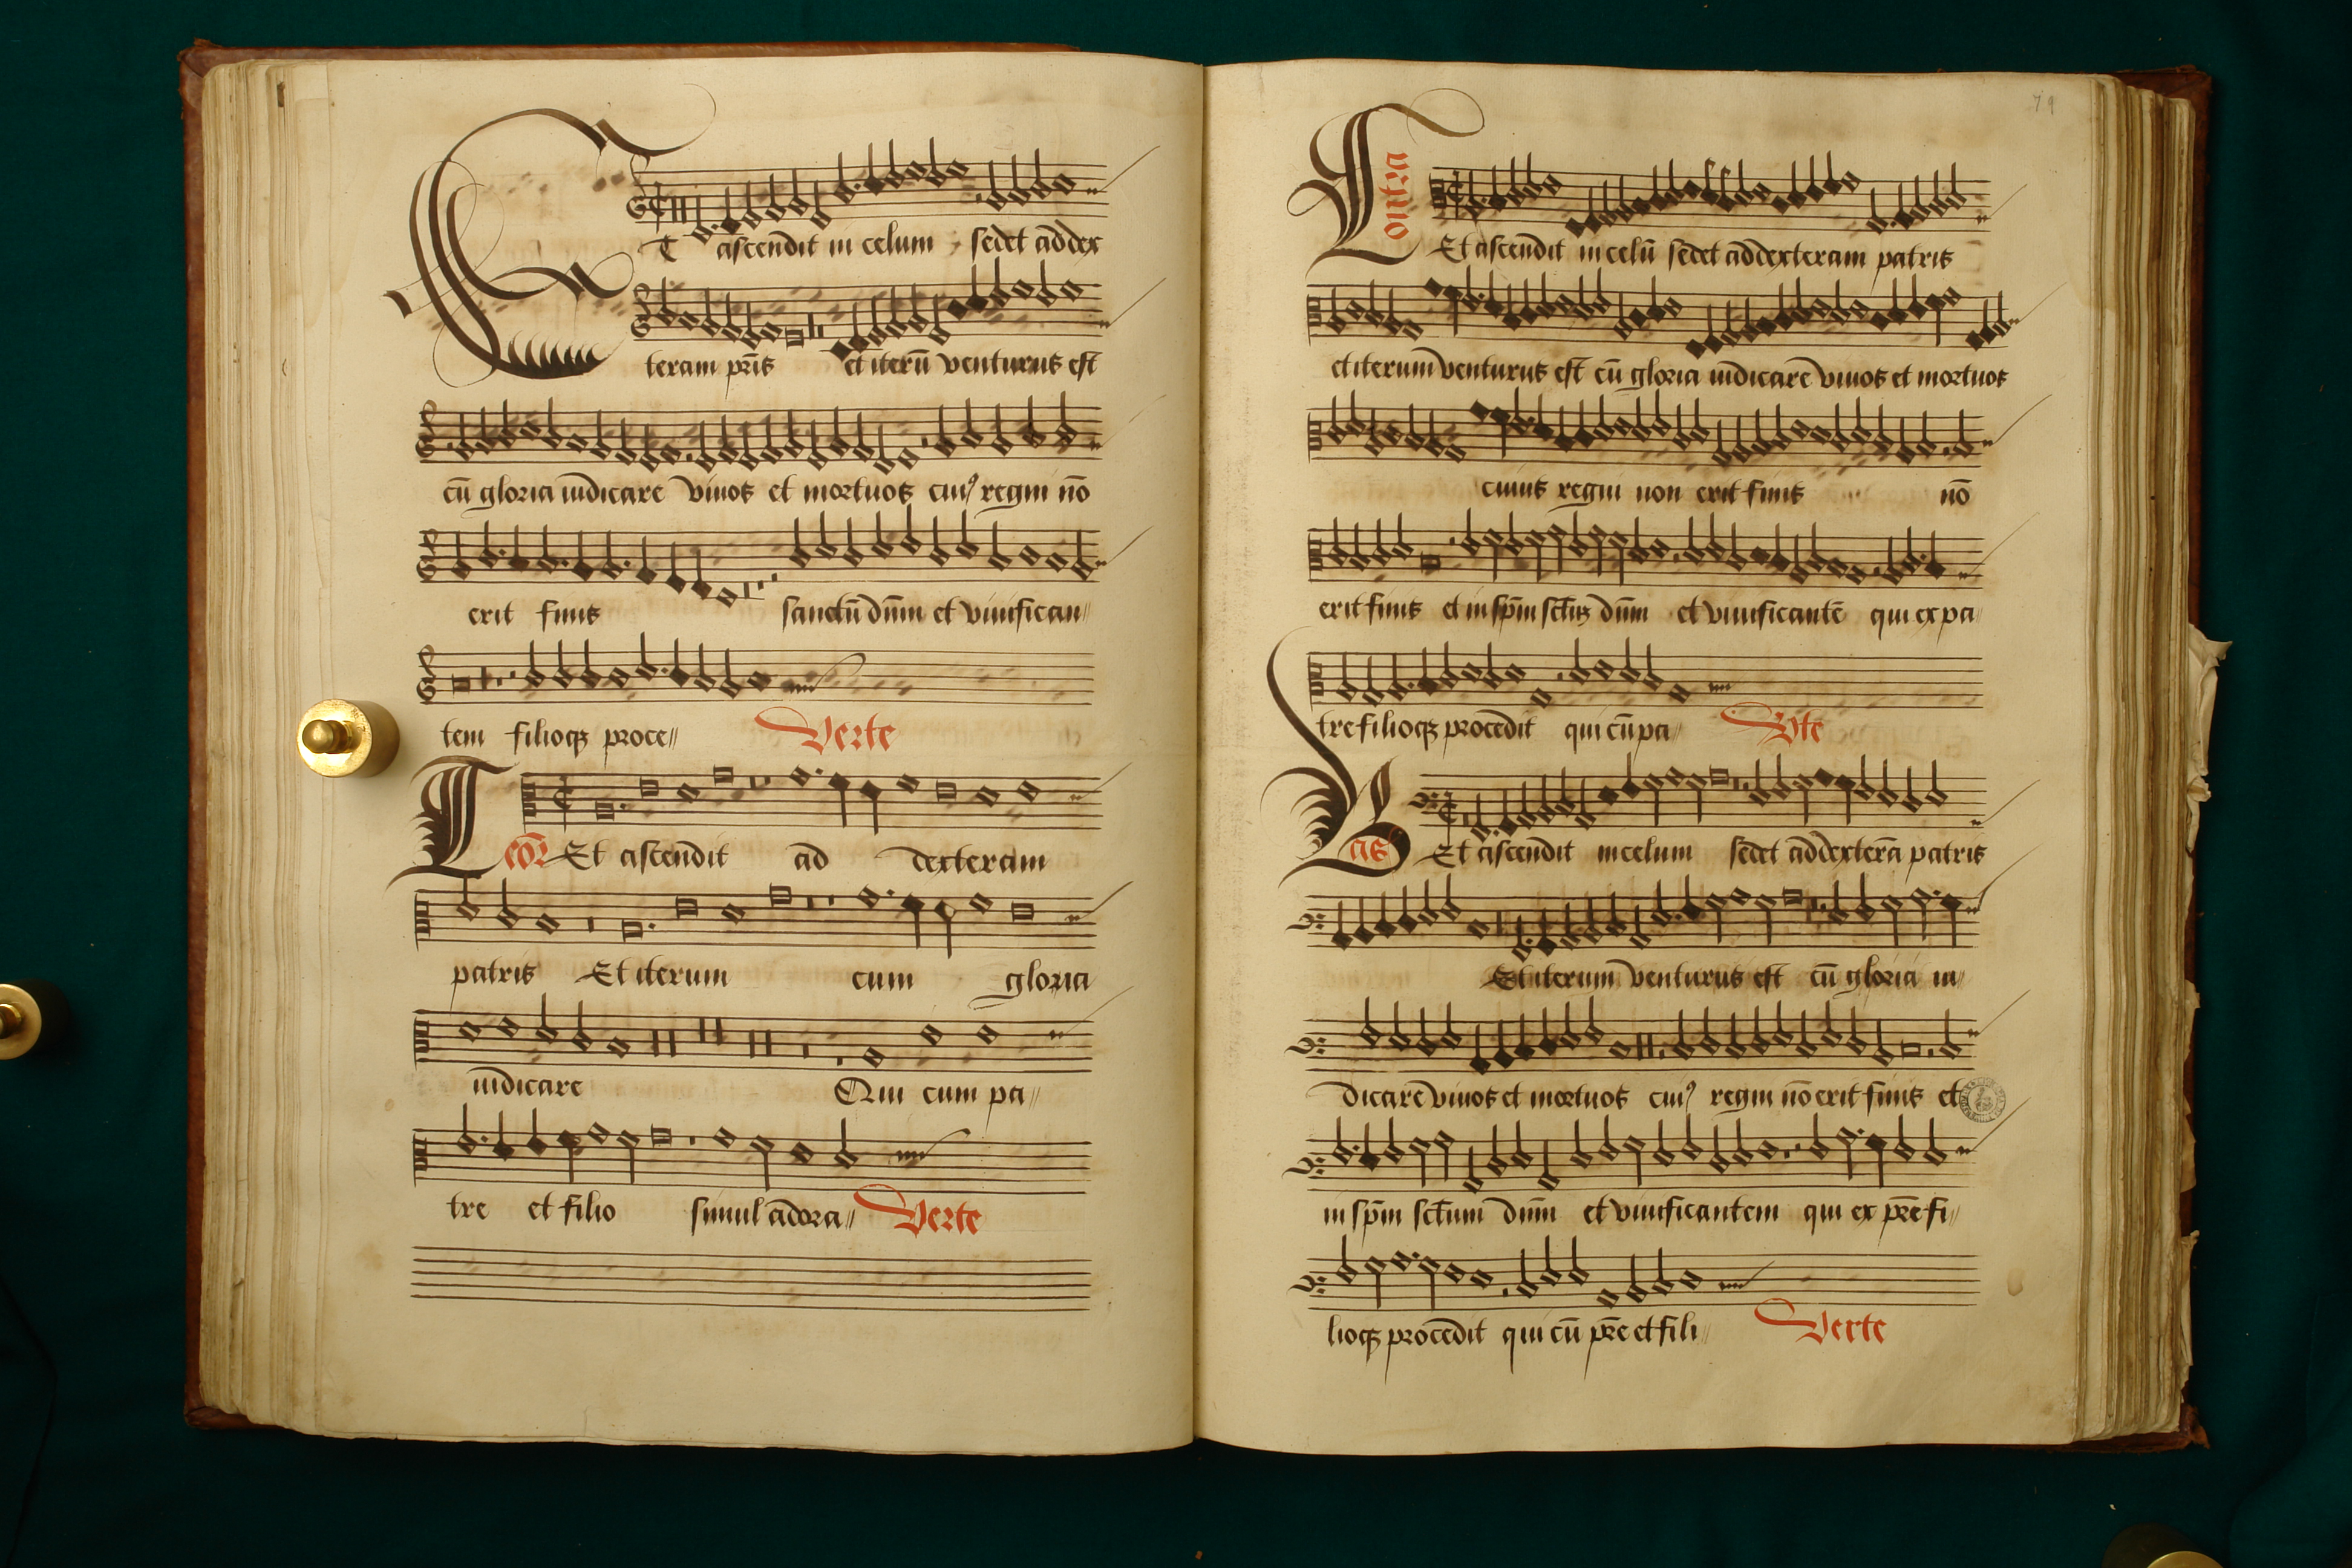 Et ascendit in celum sedet ad dex
teram pr̄is et iterū venturus est
cū gloria iudicare vivos et mortuos cuiꝰ regni nō
erit finis sanctū dn̄m et vivifican〃
tem filioqꝫ proce〃 Verte
Teōr Et ascendit ad dexteram
patris Et iterum cum gloria
iudicare Qui cum pa〃
tre et filio simul adora〃 Verte
79
Contra Et ascendit in celū sedet ad dexteram patris
et iterum venturus est cū gloria iudicare vivos et mortuos
cuius regni non erit finis nō
erit finis et in sp̄m sct̄ꝫ dn̄m et vivificantē qui ex pa〃
tre filioqꝫ procedit qui cū pa〃 Vte
Bas Et ascendit in celum sedet ad dexterā patris
Et iterum venturus est cū gloria iu〃
dicare vivos et mortuos cuiꝰ regni nō erit finis et
in sp̄m sct̄um dn̄m et vivificantem qui ex pr̄e fi〃
lioqꝫ procedit qui cū pr̄e et fili〃 Verte